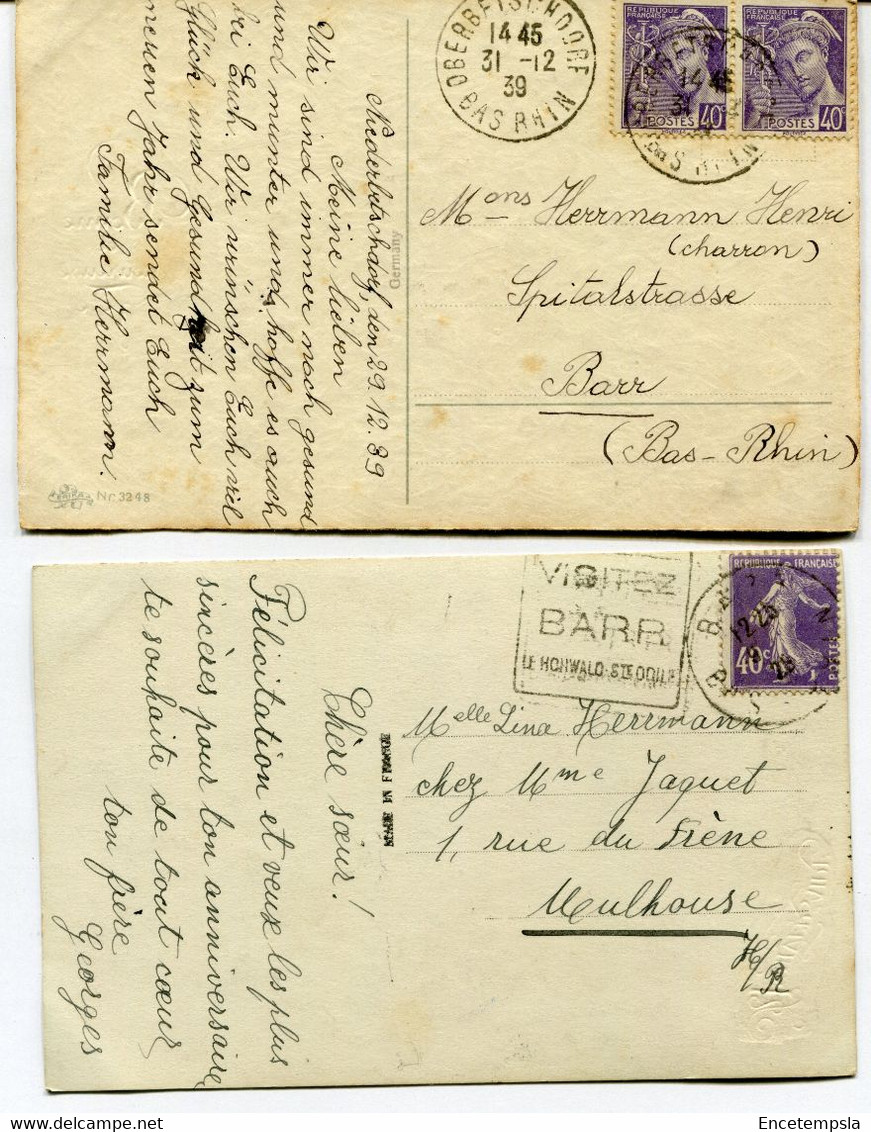 Niederbetschdorf, den 29.12.39
Meine lieben
Wir sind immer noch gesund
und munter und hoffe es auch
bei Euch. Wir wünschen Euch viel
Glück und Gesundheit zum
neuen Jahr sendet Euch
Familie Herrmann.
Nr. 3248
Germany
OBERBETSCHDORF
14 45
31 -12
39
BAS RHIN
REPUBLIQUE FRANÇAISE
40c
POSTES
REPUBLIQUE FRANÇAISE
40c
POSTES
14 45
31
Mons Herrmann Henri
(charron)
Spitalstrasse
Barr
(Bas-Rhin)
Chère sœur!
Félicitation et veux les plus
sincères pour ton anniversaire
te souhaite de tout cœur
ton frère
Georges
MADE IN FRANCE
VISITEZ
BARR
LE HOHWALD-STE ODILE
12-25
REPUBLIQUE FRANÇAISE
40c
POSTES
Melle Lina Herrmann
chez Mme Jaquet
1, rue du Frène
Mulhouse
H/R
Delcampe.net
Encetempsla